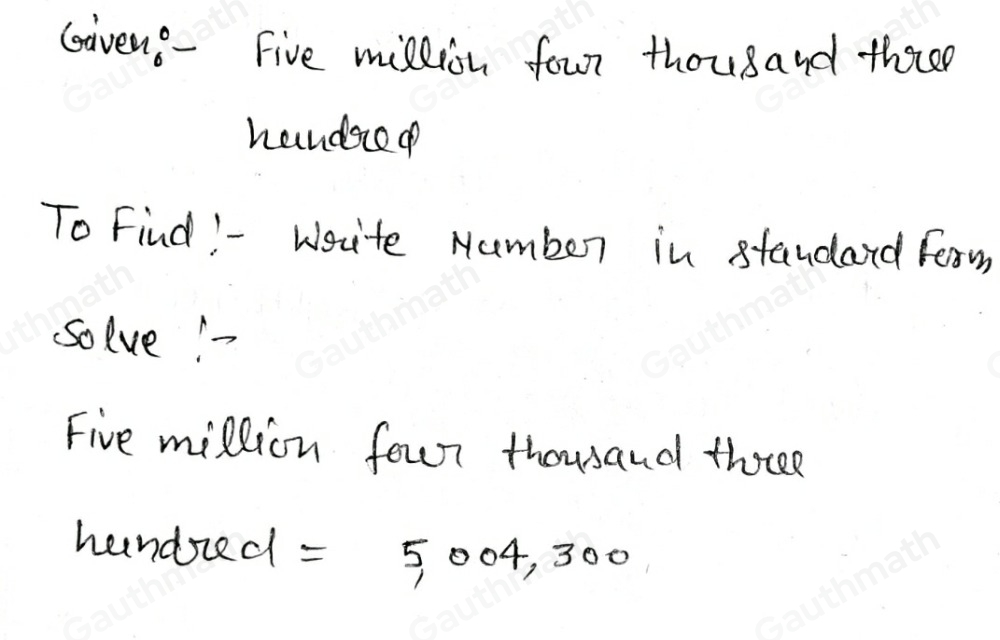 Given:- Five million four thousand three
hundred
To Find :- Write Number in standard Form
Solve :-
Five million four thousand three
hundred = 5,004,300
Gauthmath